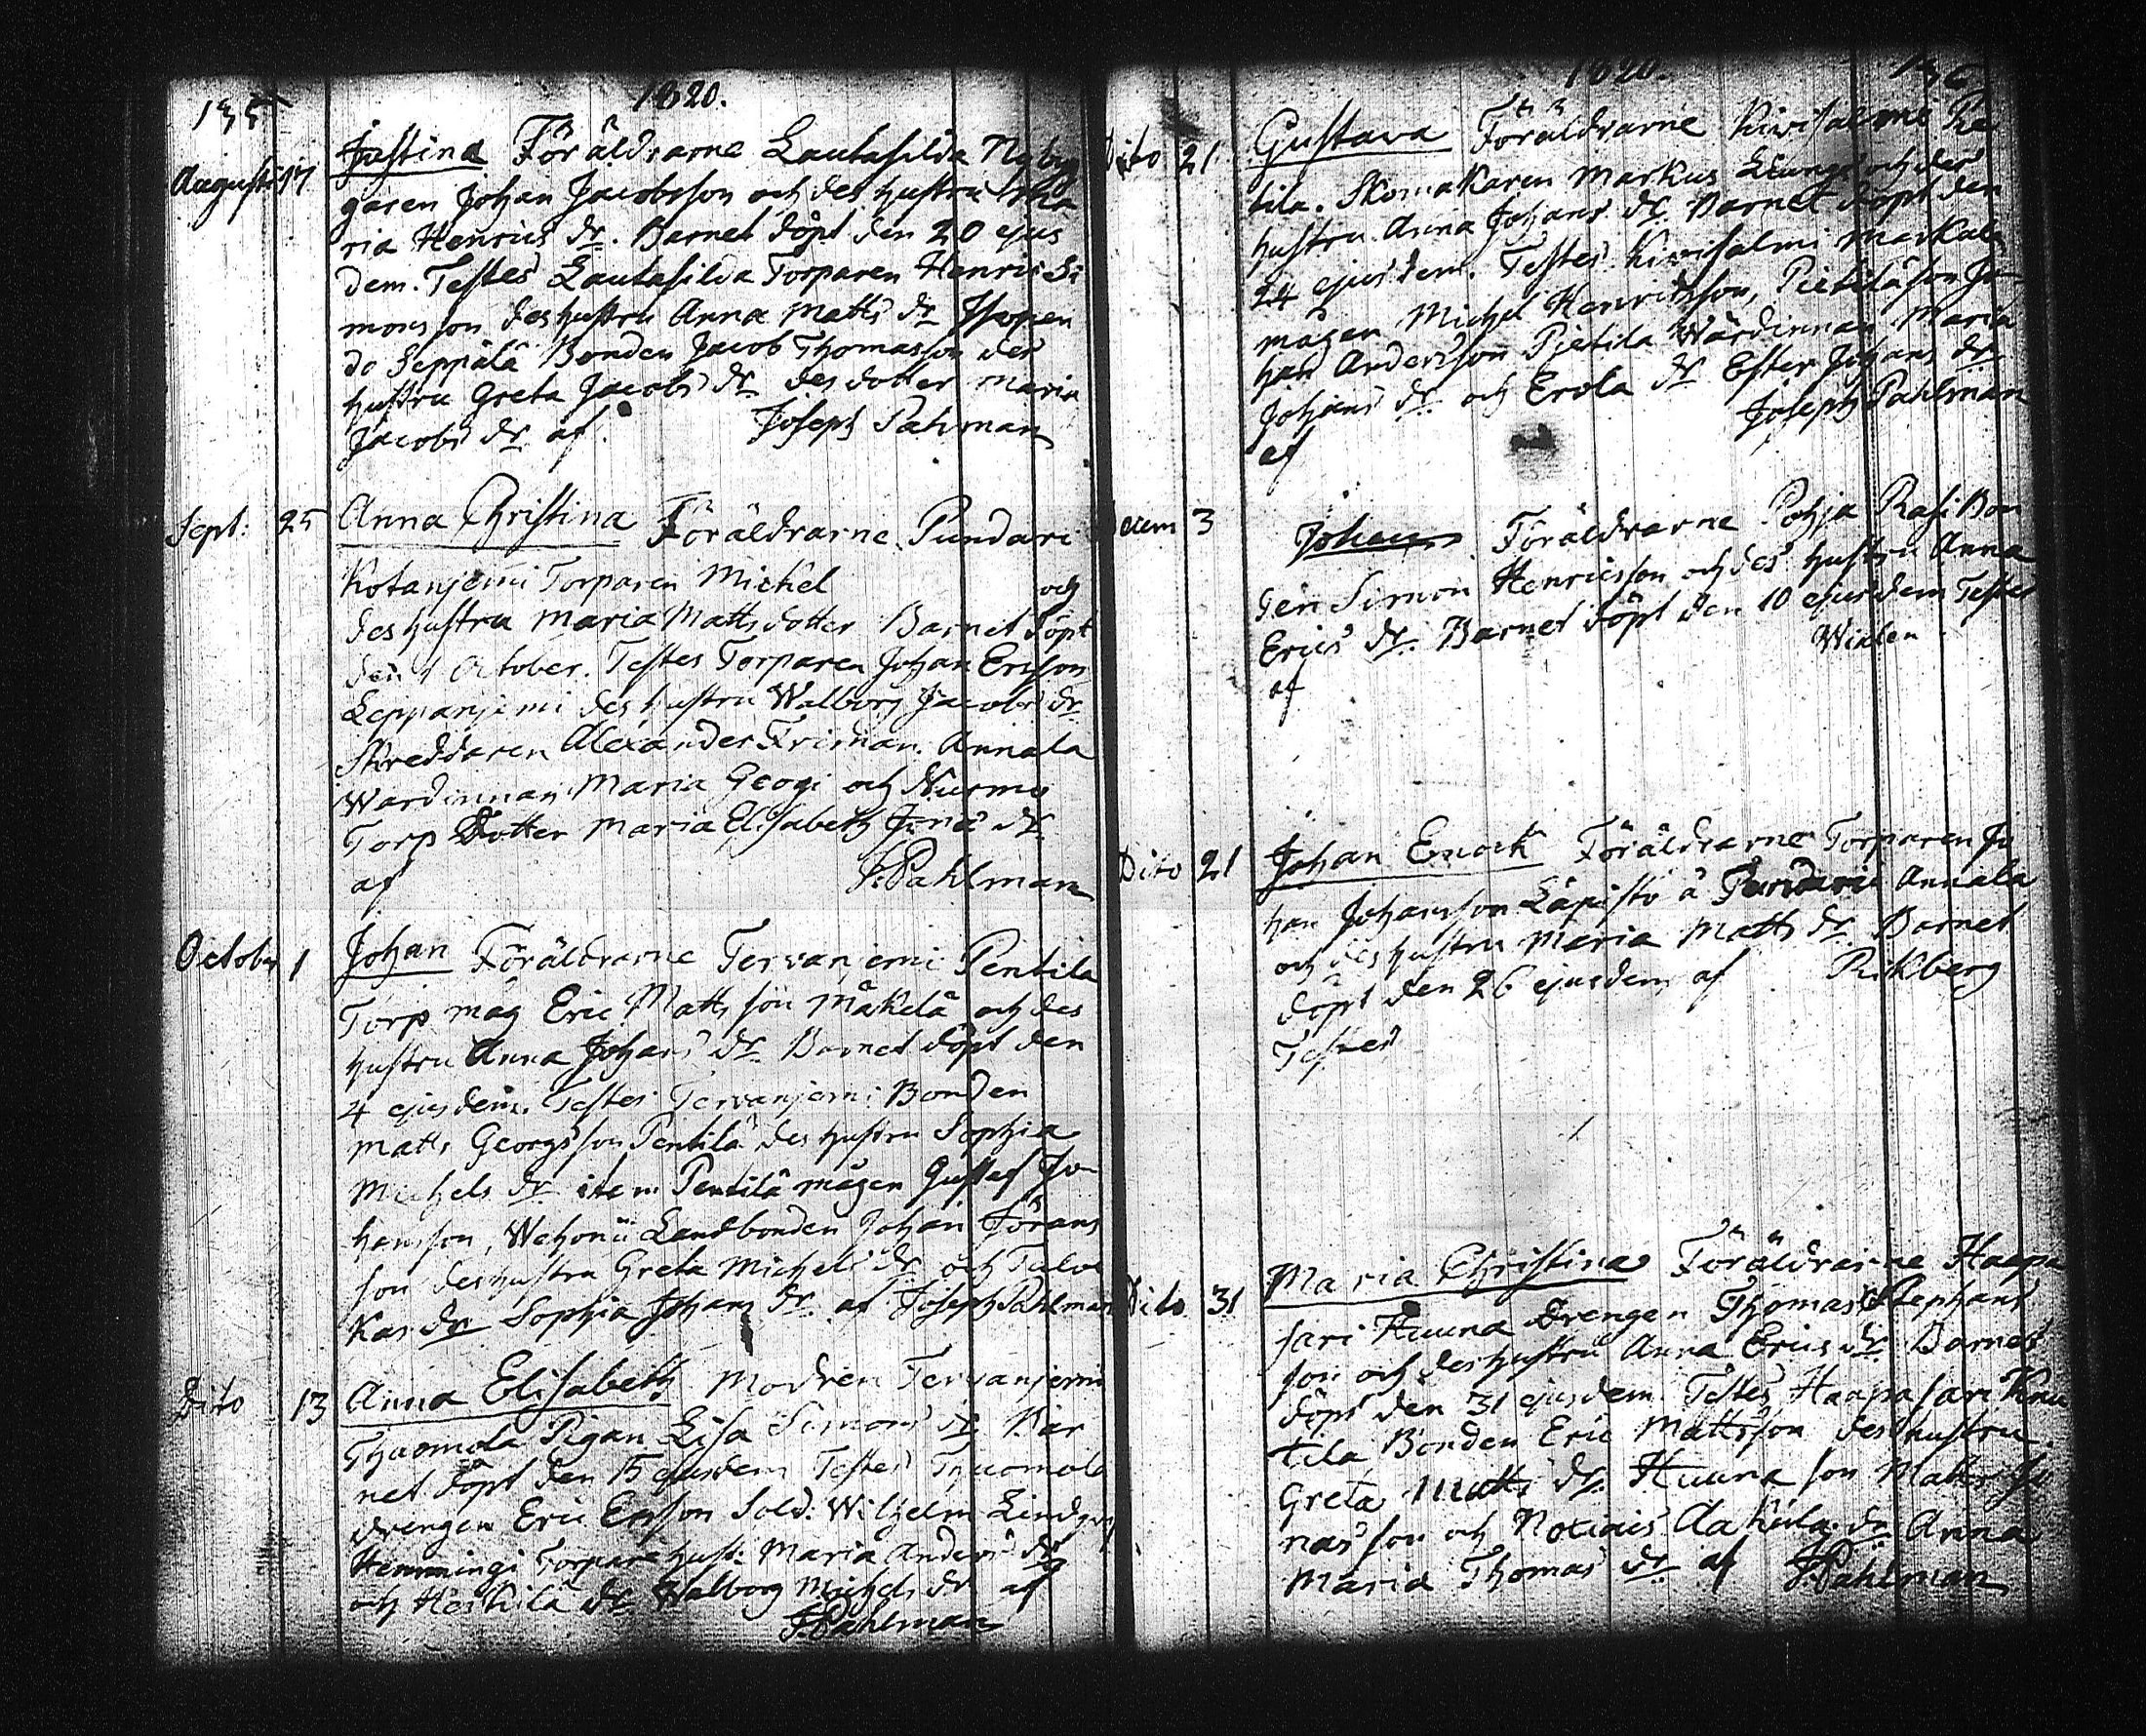 135
1820.
August 17
Justina Föräldrarne Lautasilda Nybyg
garen Johan Jacobsson och des hustru Ma
ria Henrics dr. Barnet döpt den 20 ejus
dem. Testes Lautasilda Torparen Henric Si
monsson des hustru Anna Matts dr
do Seppälä Bonden Jacob Thomasson des
hustru Greta Jacobs dr des dotter Maria
Jacobs dr af Joseph Pahlman
Sept: 25
Anna Christina Föräldrarne Pundari
Kotanjemi Torparen Michel och
des hustru Maria Mattsdotter Barnet döpt
den 1 October. Testes Torparen Johan Ersson
Leppanjemi des hustru Walborg Jacobs dr
Skreddaren Alexander Friman. Annala
Wardinnan Maria Geogi och Nurmis
Torp Dotter Maria Elisabeth dr
af J. Pahlman
October 1
Johan Föräldrarne Tervanjemi Pentila
Torp mag Eric Mattsson Mäkelä och des
hustru Anna Johans dr. Barnet döpt den
4 ejusdem. Testes Tervanjemi Bonden
Matts Georgsson Pentilä des hustru Sophia
Michels dr item Pentilä mågen Gustaf Jo
hansson, Wehoniä Landbonden Johan Görans
son des hustru Greta Michels dr och Palvi
Kas dr Sophia Johans dr. af Joseph Pahlman
Dito 13
Anna Elisabeth Modren Tervanjemi
Thuomola Pigan Lisa Simons dr. Bar
net döpt den 15 ejusdem Testes Thuomola
drengen Eric Ersson Sold: Wilhelm Lindgren
Hemmingi Torpare hust: Maria Anders dr
och Heskilä dr Walborg Michels dr af
J. Pahlman
1820.
136
Dito 21
Gustava Föräldrarne Kivisalmi Pie
tila. Skomakaren Markus och des
hustru Anna Johans dr. Barnet döpt den
24 ejusdem. Testes Kivisalmi Markula
mågen Michel Henricsson, Pietilä son Jo
han Andersson Pietila Wärdinnan Maria
Johans dr. och Erola dr Ester Johans dr.
af Joseph Pahlman
Decem 3
Johan Föräldrarne Pohja Rasi Bon
den Simon Henricsson och des hustru Anna
Erics dr. Barnet döpt den 10 ejusdem Testes
af Widen
Dito 21
Johan Enock Föräldrarne Torparen Jo
han Johansson Läpistö å Pundari Annala
och des hustru Maria Matts dr Barnet
döpt den 26 ejusdem af Rikberg
Testes
Dito 31
Maria Christina Föräldrarne Haapa
sari Huuna Drengen Thomas Stephans
son och des hustru Anna Erics dr Barnet
döpt den 31 ejusdem Testes Haapasari Knu
tila Bonden Eric Mattsson des hustru
Greta Matts dr. Huuna son Matts Jo
nasson och Notiais dr Anna
Maria Thomas dr af J. Pahlman